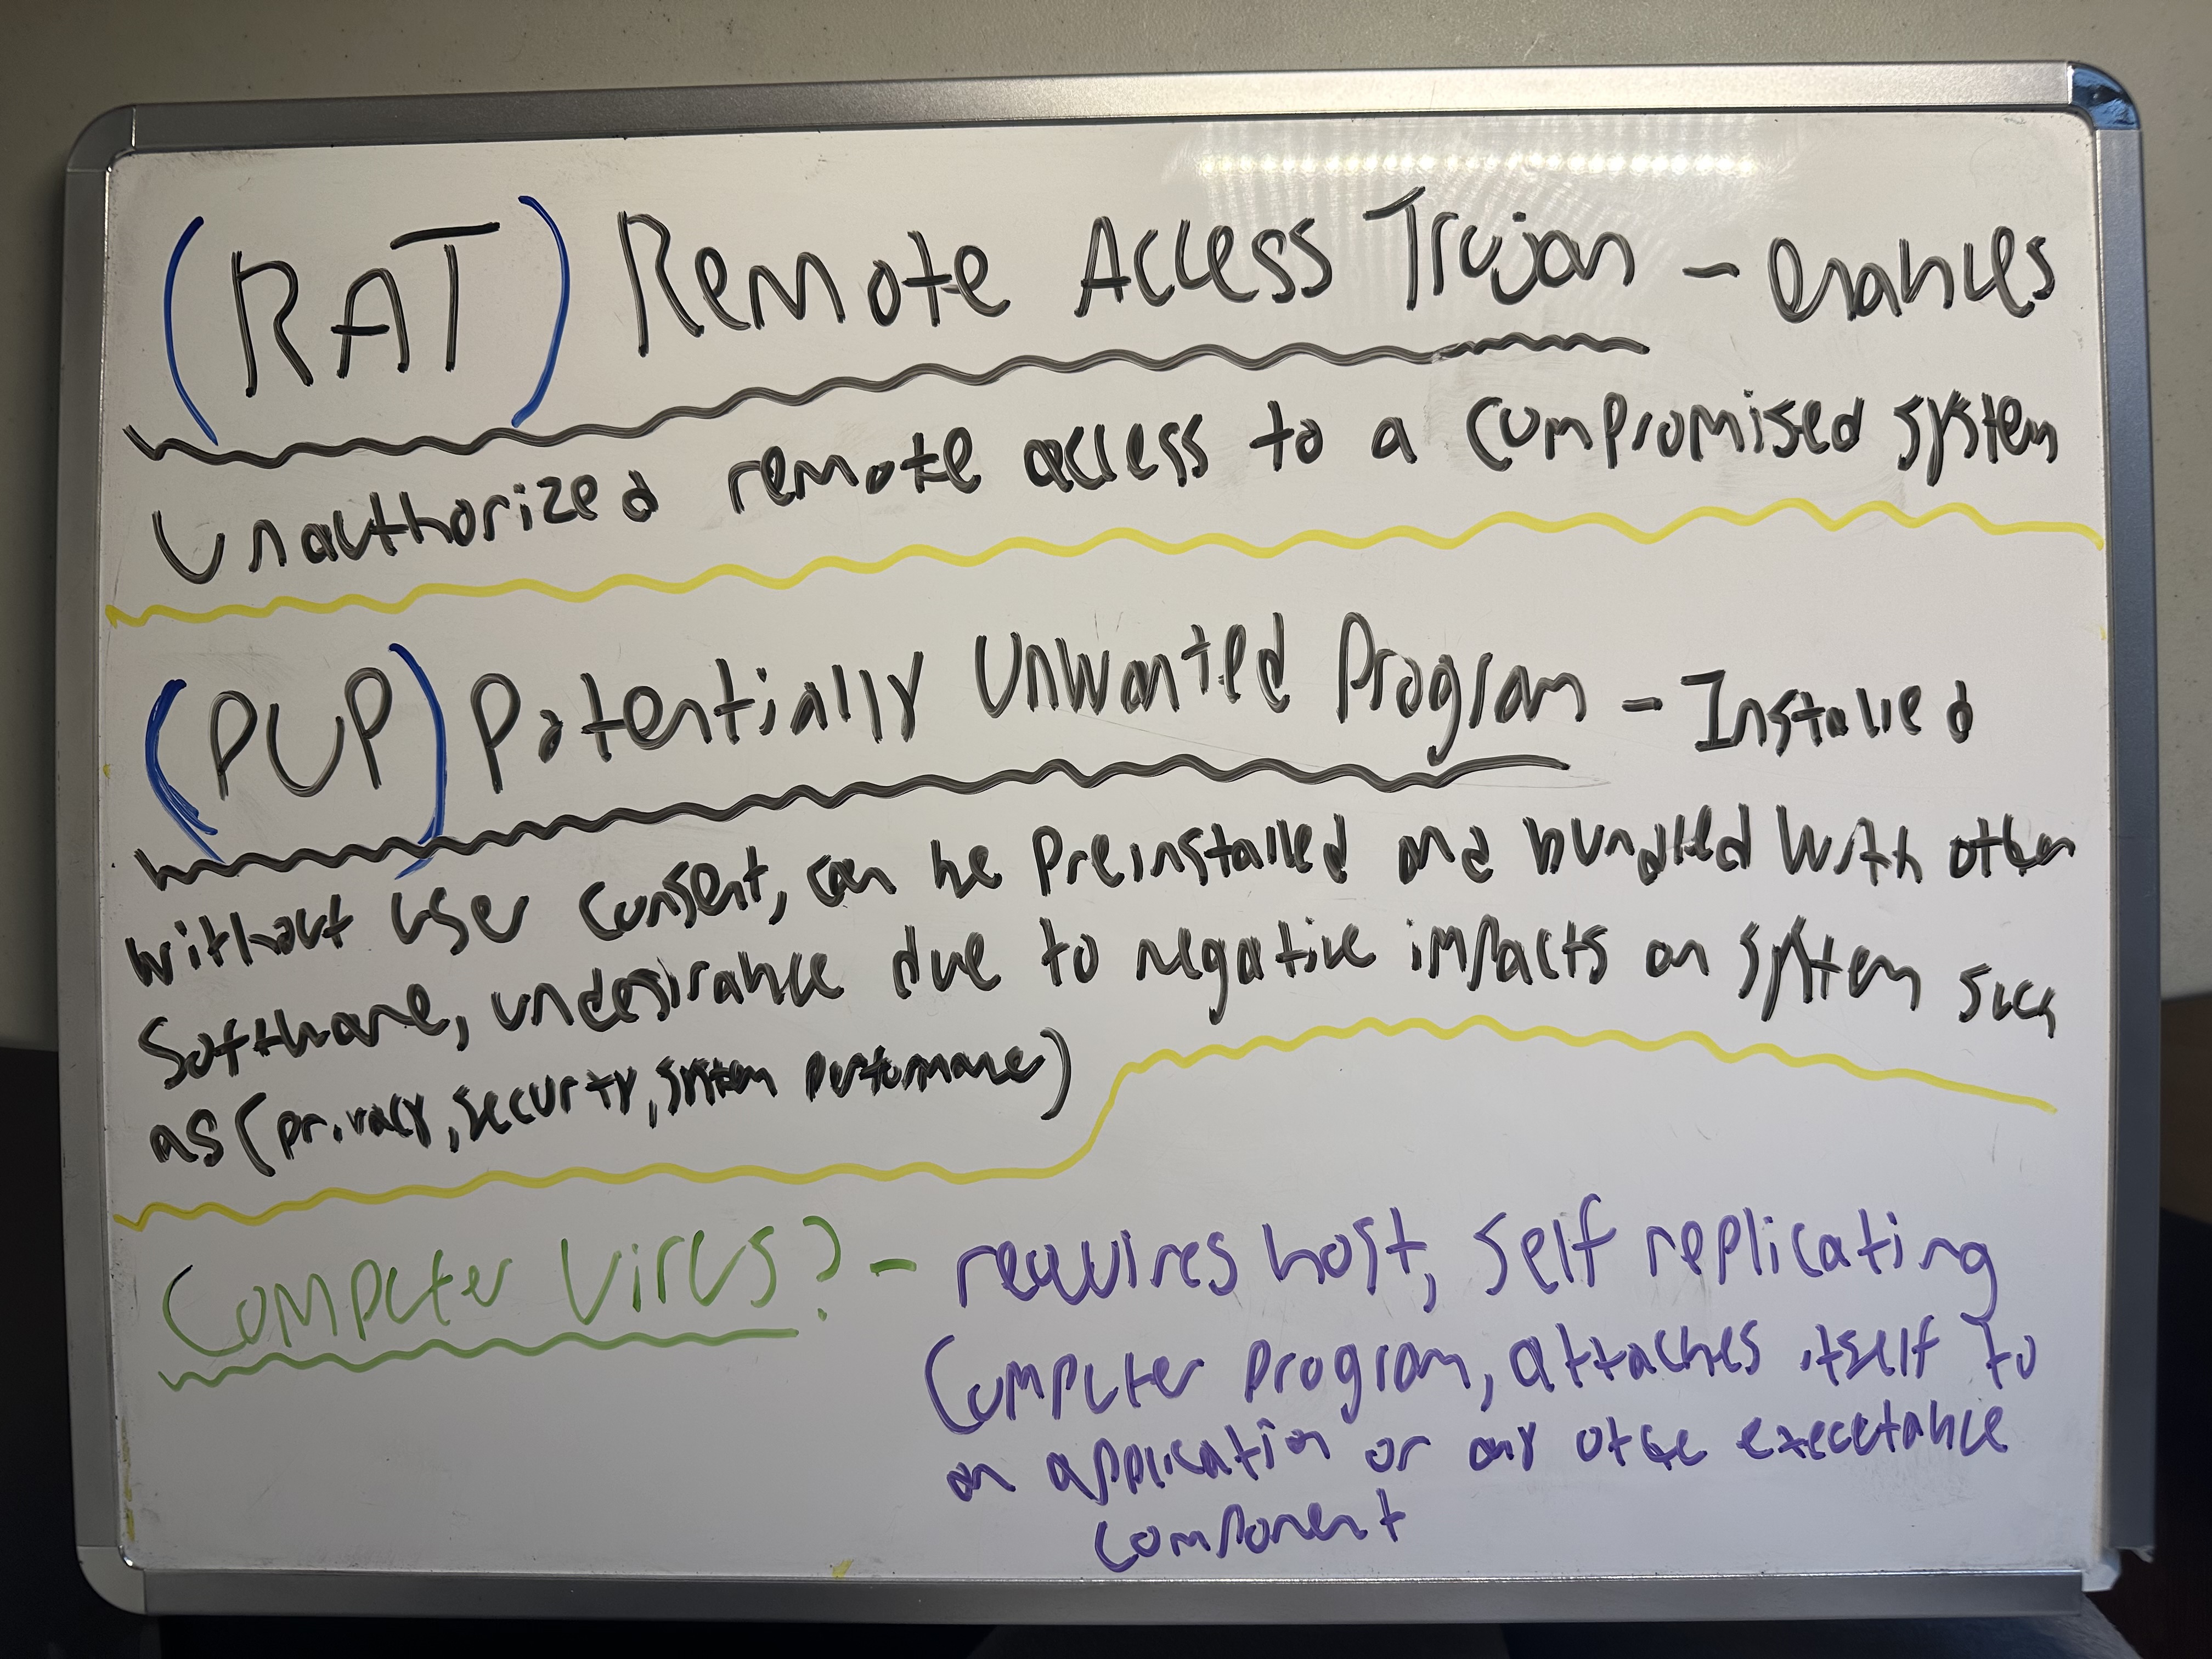 (RAT) Remote Access Trojan - enables
Unauthorized remote access to a compromised system
(PUP) Potentially Unwanted Program - Installed
without user consent, can be preinstalled and bundled with other
Software, undesirable due to negative impacts on system such
as (privacy, security, system performance)
Computer Virus? - requires host, self replicating
Computer program, attaches itself to
an application or any other executable
component